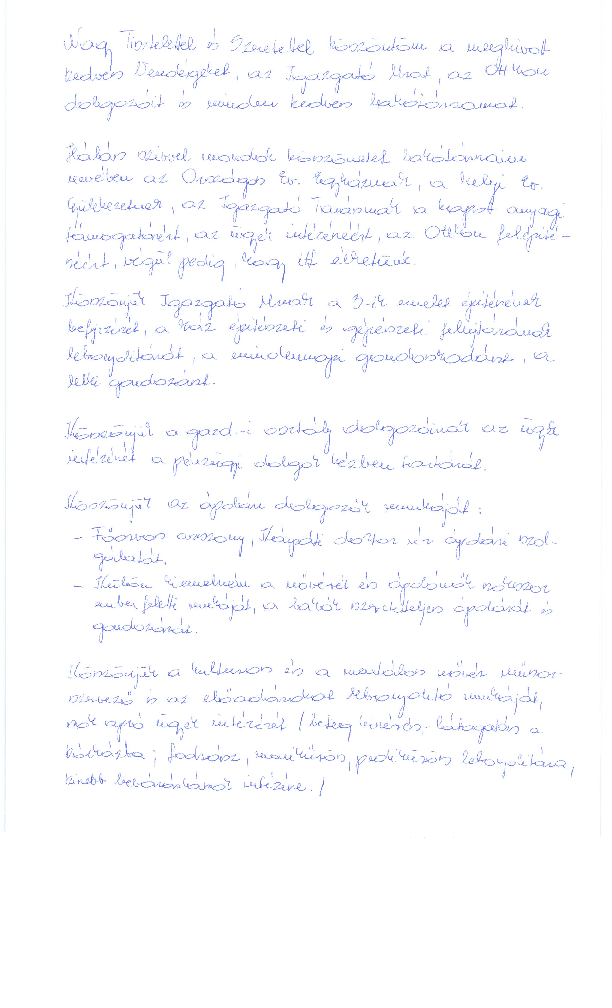 Nagy Tisztelettel és Szeretettel köszöntöm a meghívott
kedves Vendégeket, az Igazgató Urat, az Otthon
dolgozóit és minden kedves lakótársamat.
Hálás szívvel mondok köszönetet lakótársaim
nevében az Országos Ev. Egyháznak, a helyi Ev.
Gyülekezetnek, az Igazgató Tanácsnak a kapott anyagi
támogatásért, az ügyek intézéséért, az Otthon felépíté-
séért, végül pedig, hogy itt élhetünk.
Köszönjük Igazgató Úrnak a 3-ik emelet építésének
befejezését, a ház építészeti és gépészeti felújításának
lebonyolítását, a mindennapi gondoskodást, a
lelki gondozást.
Köszönjük a gazd-i osztály dolgozóinak az ügyek
intézését a pénzügyi dolgok kézben tartását.
Köszönjük az ápolási dolgozók munkáját:
- Főorvos asszony, doktor úr ápolási szol-
gálatát.
- Külön kiemelném a nővérek és ápolónők sokszor
ember feletti munkáját, a lakók szeretetteljes ápolását és
gondozását.
Köszönjük a kulturos és a mentálos nővér műsor-
szervező és az előadásokat lebonyolító munkáját,
sok apró ügyek intézését / beteg kísérés, látogatás a
kórházba, fodrász, manikűrös, pedikűrös lebonyolítása,
kisebb bevásárlások intézése./